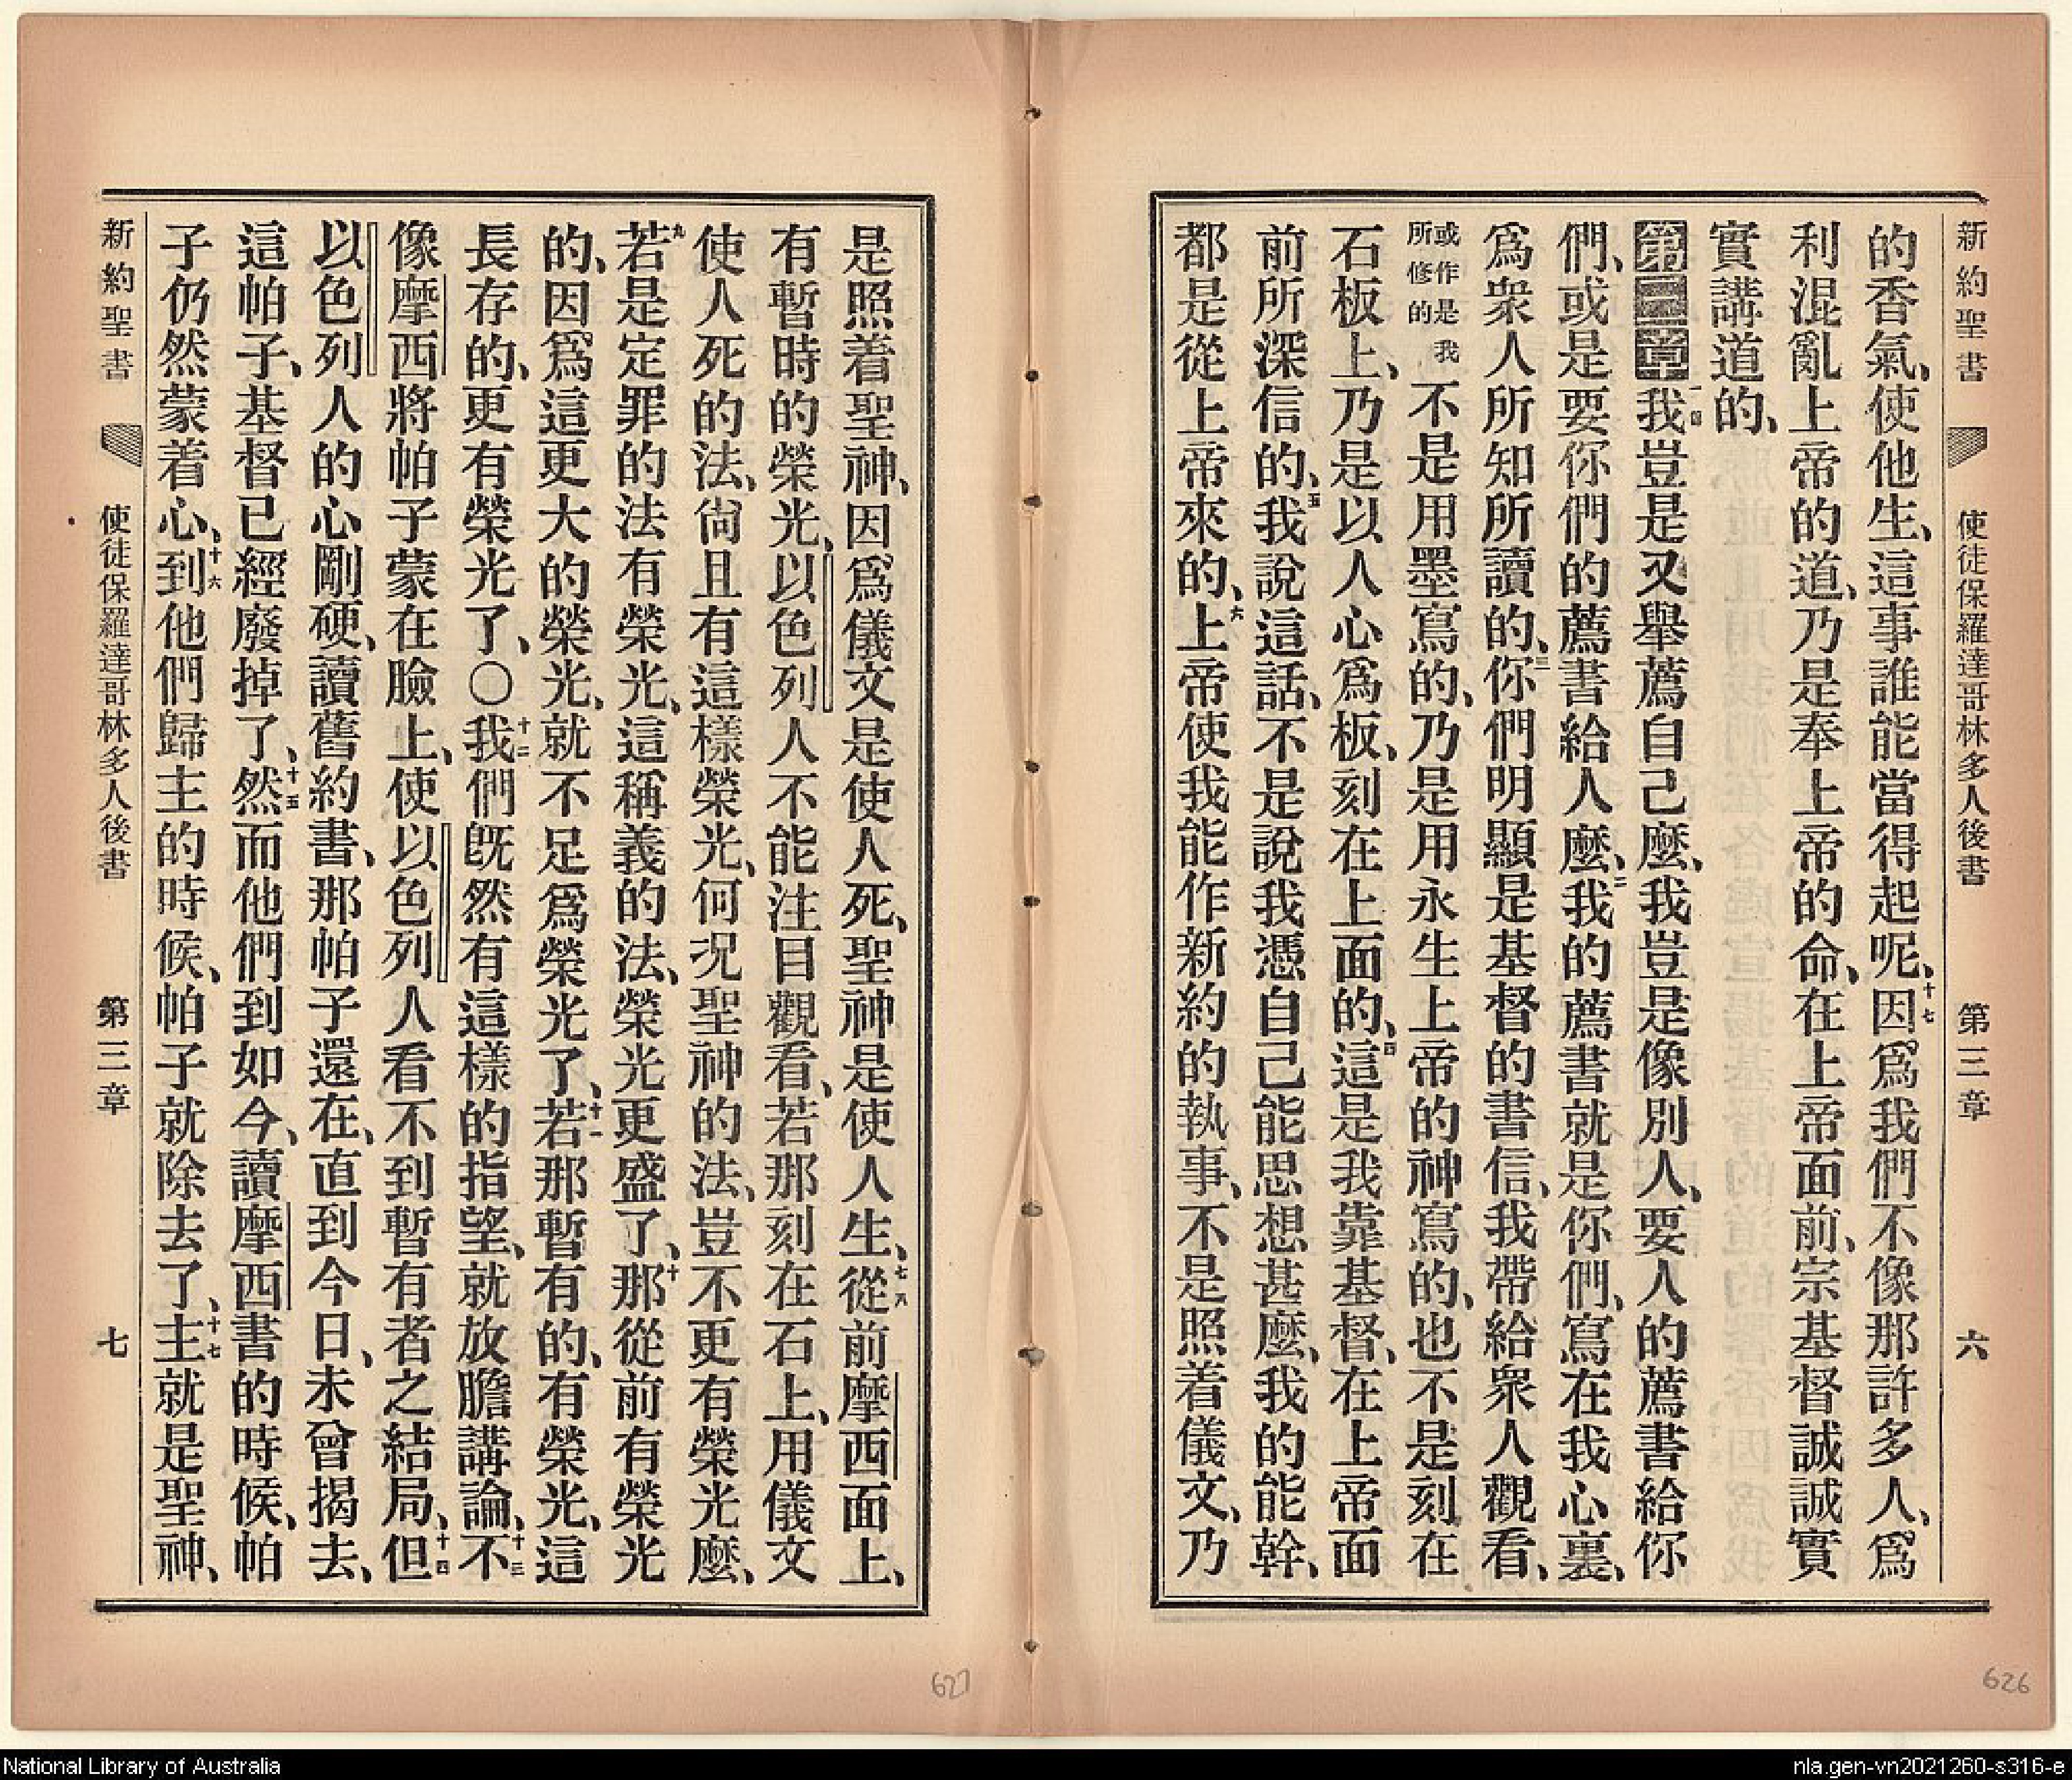 新約聖書 使徒保羅達哥林多人後書 第三章 六
的香氣、使他生、這事誰能當得起呢、十七因爲我們不像那許多人、爲
利混亂上帝的道、乃是奉上帝的命、在上帝面前、宗基督誠誠實
實講道的、
第三章一我豈是又舉薦自己麼、我豈是像別人、要人的薦書給你
們、或是要你們的薦書給人麼、二我的薦書就是你們、寫在我心裏、
爲衆人所知所讀的、三你們明顯是基督的書信、我帶給衆人觀看、
或作是我所修的不是用墨寫的、乃是用永生上帝的神寫的、也不是刻在
石板上、乃是以人心爲板、刻在上面的、四這是我靠基督、在上帝面
前所深信的、五我說這話、不是說我憑自己能思想甚麼、我的能幹、
都是從上帝來的、六上帝使我能作新約的執事、不是照着儀文、乃
是照着聖神、因爲儀文是使人死、聖神是使人生、七八從前摩西面上、
有暫時的榮光、以色列人不能注目觀看、若那刻在石上、用儀文
使人死的法、尙且有這樣榮光、何况聖神的法、豈不更有榮光麼、
九若是定罪的法有榮光、這稱義的法、榮光更盛了、十那從前有榮光
的、因爲這更大的榮光、就不足爲榮光了、十一若那暫有的、有榮光、這
長存的、更有榮光了、〇十二我們旣然有這樣的指望、就放膽講論、十三不
像摩西將帕子蒙在臉上、使以色列人看不到暫有者之結局、十四但
以色列人的心剛硬、讀舊約書、那帕子還在、直到今日、未曾揭去、
這帕子、基督已經廢掉了、十五然而他們到如今、讀摩西書的時候、帕
子仍然蒙着心、十六到他們歸主的時候、帕子就除去了、十七主就是聖神、
新約聖書 使徒保羅達哥林多人後書 第三章 七
627
626
National Library of Australia
nla.gen-vn2021260-s316-e